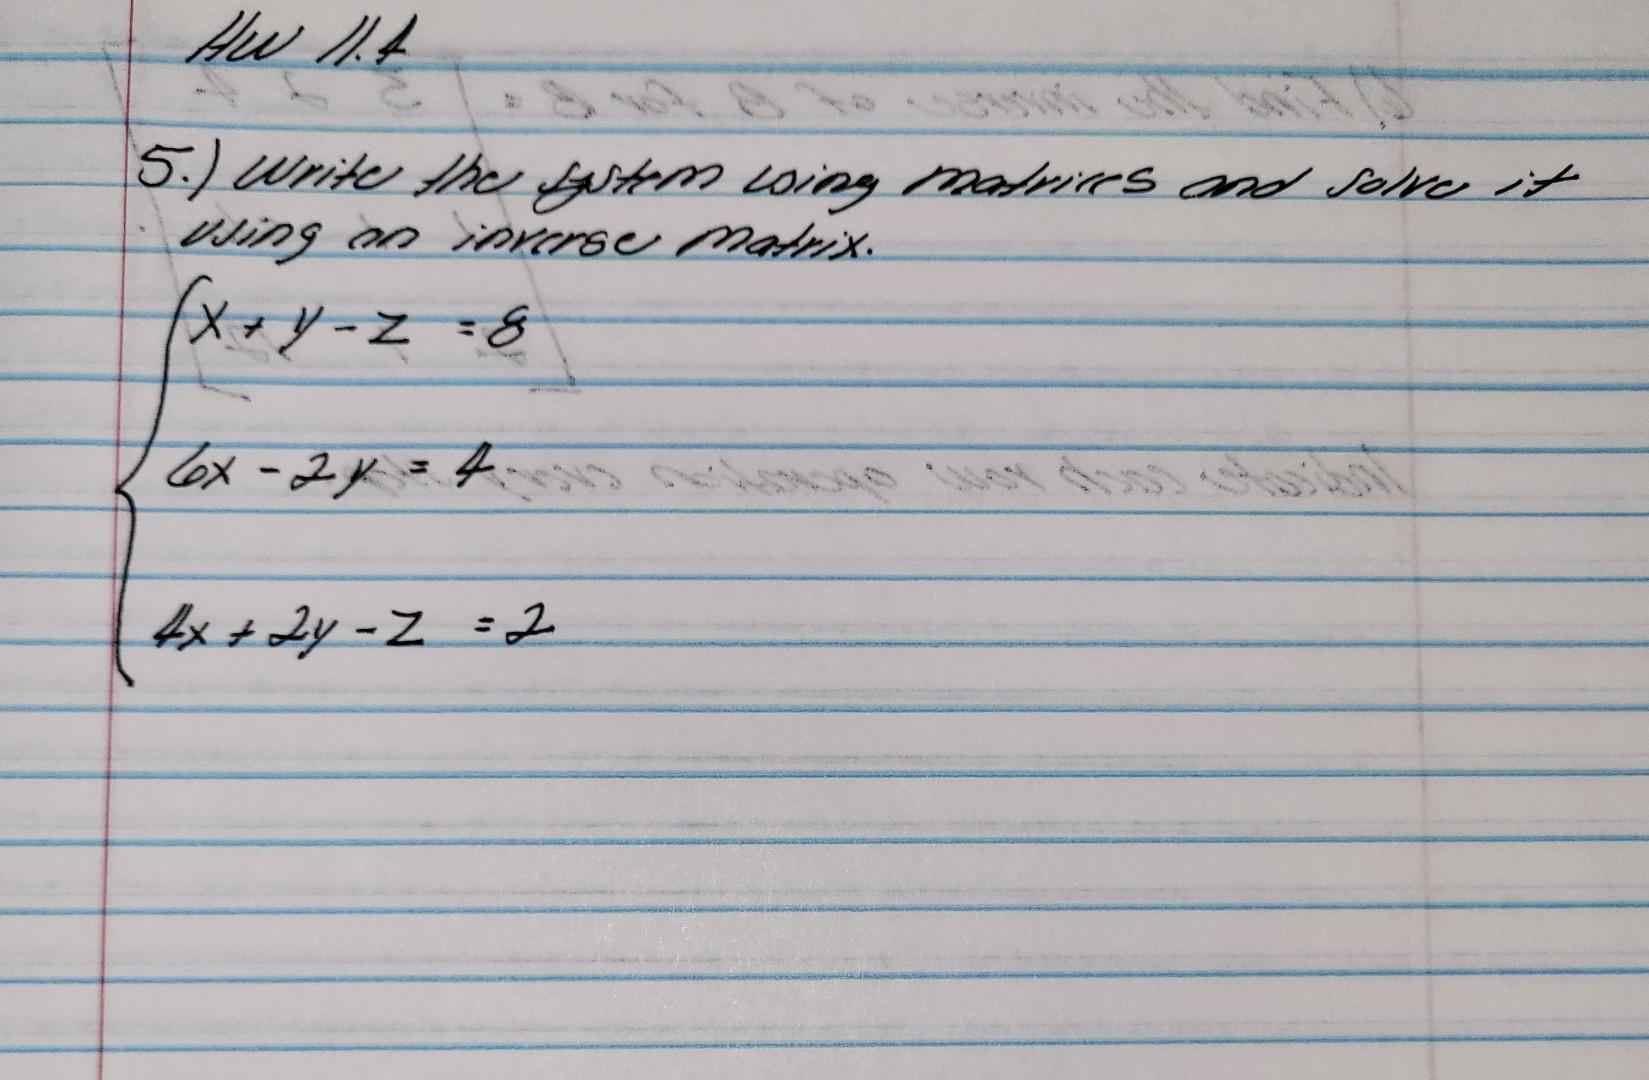 HW 11.4
5.) Write the system using matrices and solve it
using an inverse matrix.
x + y - z = 8
6x - 2y = 4
4x + 2y - z = 2